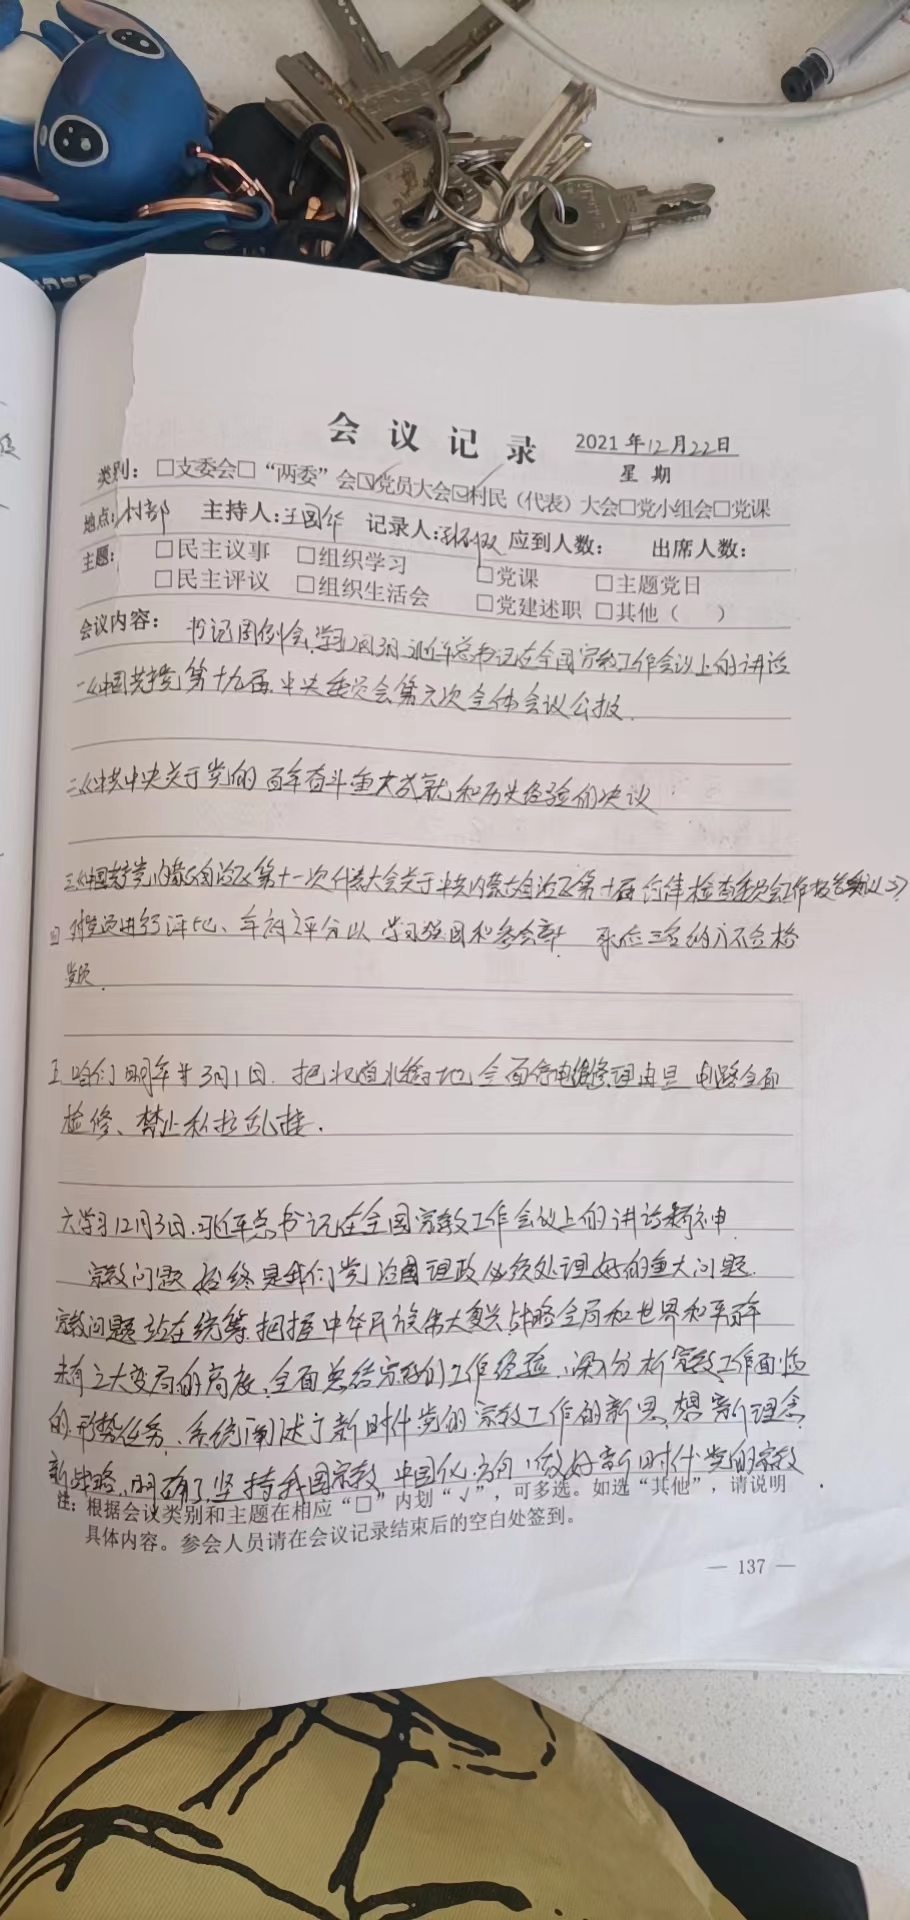 会议记录 2021年12月22日
星期
类别：□支委会□“两委”会☑党员大会☑村民（代表）大会□党小组会□党课
地点：村部 主持人：王国华 记录人： 应到人数： 出席人数：
主题： □民主议事 □组织学习 □党课 □主题党日
□民主评议 □组织生活会 □党建述职 □其他（ ）
会议内容： 书记周例会，学习12月3日习近平总书记在全国宗教工作会议上的讲话
一《中国共产党第十九届中央委员会第六次全体会议公报
二《中共中央关于党的百年奋斗重大成就和历史经验的决议
三《中国共产党内蒙古自治区第十一次代表大会关于中共内蒙古自治区第十届纪律检查委员会工作报告决议》
四 对党员进行评比、年初评分以学习强国和参会率 末位三名的为不合格
党员.
五 咱们明年 3月1日. 把 全面停电维修理由是 电路全面
检修、禁止私拉乱接.
六学习12月3日.习近平总书记在全国宗教工作会议上的讲话精神
宗教问题始终是我们党治国理政必须处理好的重大问题.
宗教问题站在统筹把握中华民族伟大复兴战略全局和世界和平百年
未有之大变局的高度.全面总结宗教的工作经验.深刻分析宗教工作面临
的形势任务、系统阐述了新时代党的宗教工作的新思想新理念
新战略.明确了坚持我国宗教中国化方向,做好新时代党的宗教
注：根据会议类别和主题在相应“□”内划“√”，可多选。如选“其他”，请说明
具体内容。参会人员请在会议记录结束后的空白处签到。
— 137 —